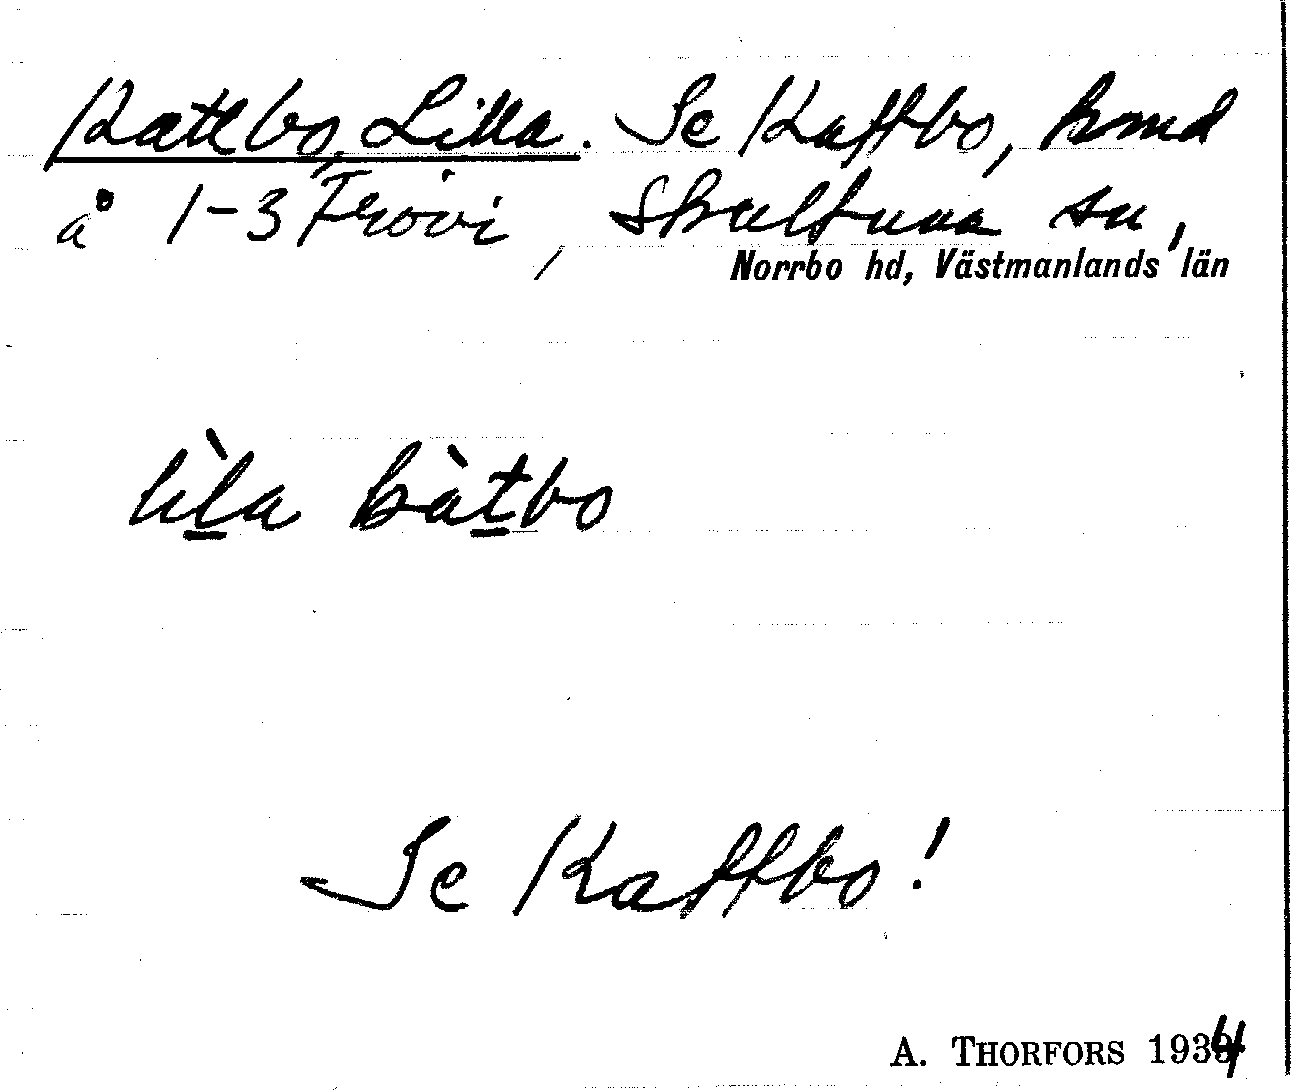 Kattbo, Lilla. Se Kattbo, hmd
å 1-3 Frövi, Skultuna sn,
Norrbo hd, Västmanlands län
lìla kàtbo
Se Kattbo!
A. THORFORS 1934